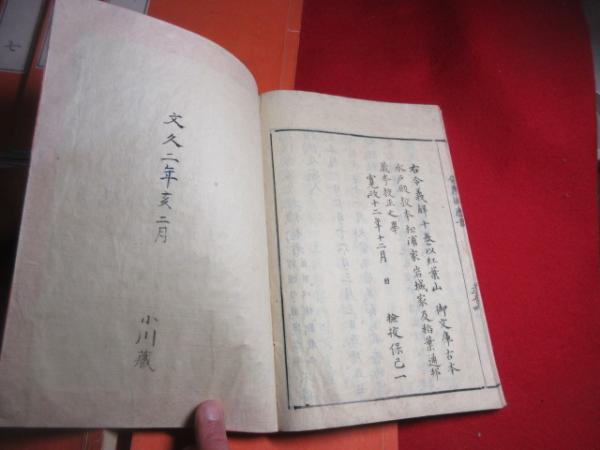 右令義解十巻以紅葉山 御文庫古本
水戸殿校本松浦家岩城家及稲葉通邦
蔵本校正之畢
寛政十二年十二月 日 検校保己一
文久二年亥二月
小川蔵
七